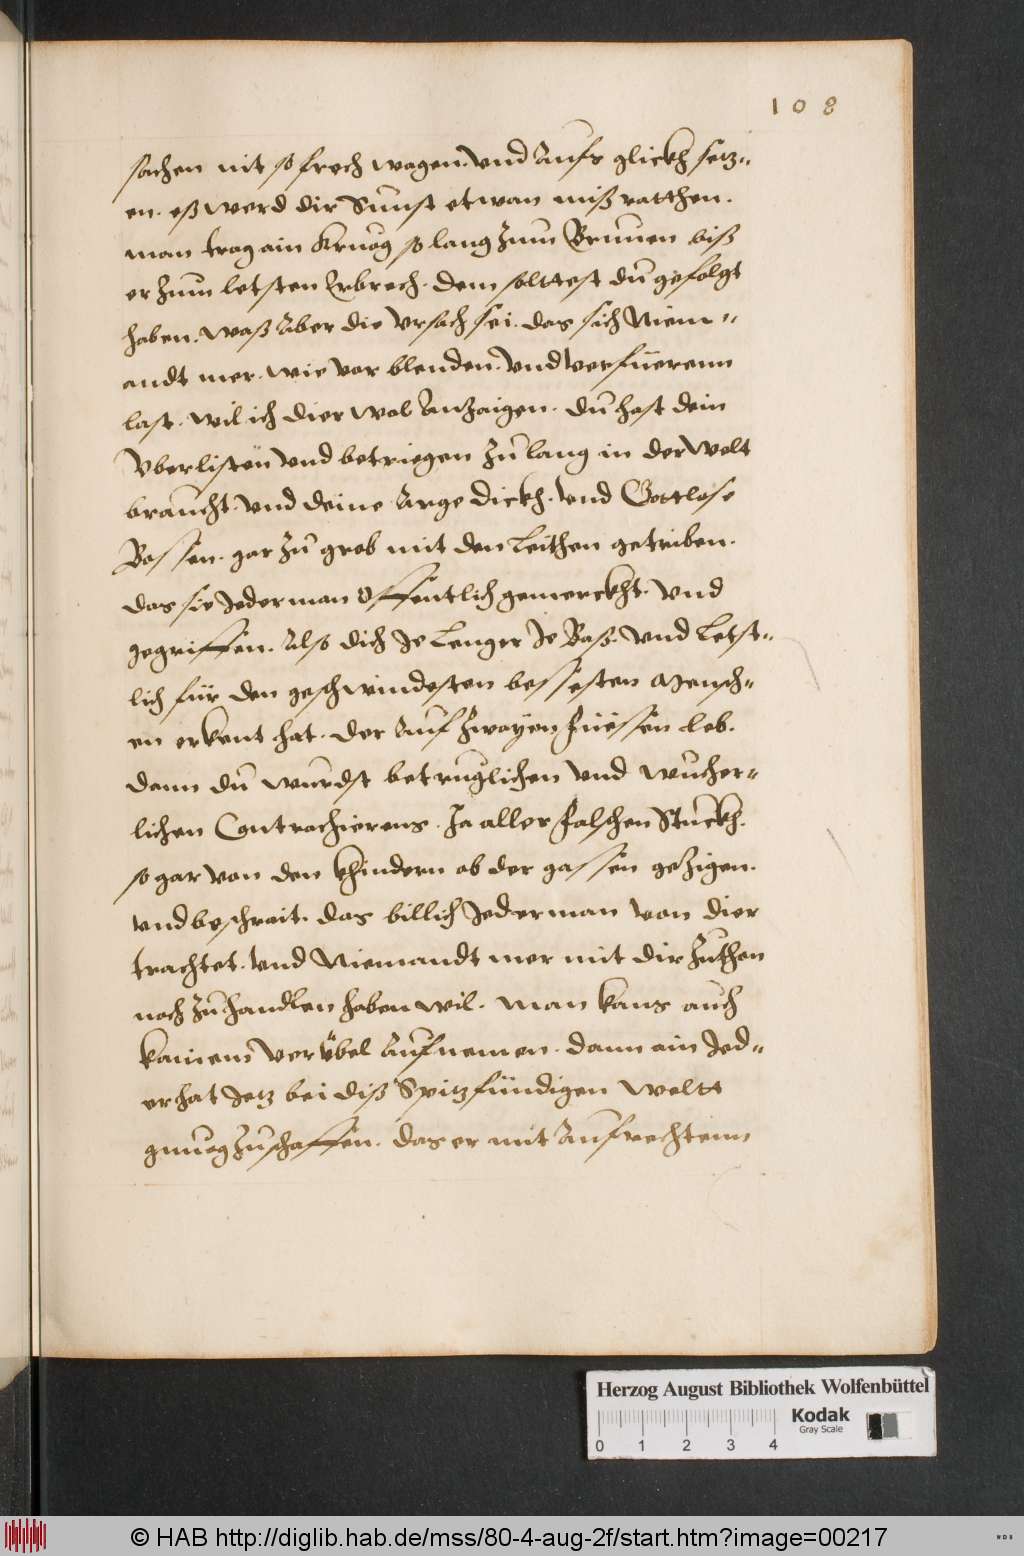 108
sachen nit so frech wagen. vnd Aufs glickh setz=
en. eß werd dir Sunst etwan miß ratthen.
man trag ain Kruog so lang zum Brunen biß
er zum letsten Erbrech. dem solttest dŭ gefolgt
haben. waß Aber die Vrsach sei. das sich Niem=
andt mer. wie vor blenden. vnd verfüerenn
last. wil ich dier wol Anzaigen. dŭ hast dein
Vberlisten vnd betriegen zŭ lang in der Welt
braucht. vnd deine Arge dickh. vnd Gottlose
Bossen. gar zŭ grob mit den Leithen getriben.
das sie Jederman Offentlich gemerckht. vnd
gegriffen. Also dich Je Lenger Je Baß. vnd Letst=
lich für den geschwindesten bessesten Mensch=
en erkent hat. der Auf Zwayen Füessen leb.
dann dŭ wurdst betruglichen vnd wucher=
lichen Contrachierens. Ja aller falschen Stuckh.
so gar von den Khindern ob der gassen gezigen.
vnd beschrait. das billich Jederman von dier
trachtet. vnd Niemandt mer mit dir Zuthen
noch zŭ handlen haben wil. man kans auch
kainem verübel Aufnemen. dann ain Jed=
er hat Jetz bei diß Spitzfündigen weltt
gnuog Zuschaffen. das er mit Aufrechtenn
Herzog August Bibliothek Wolfenbüttel
Kodak
Gray Scale
0 1 2 3 4
© HAB http://diglib.hab.de/mss/80-4-aug-2f/start.htm?image=00217